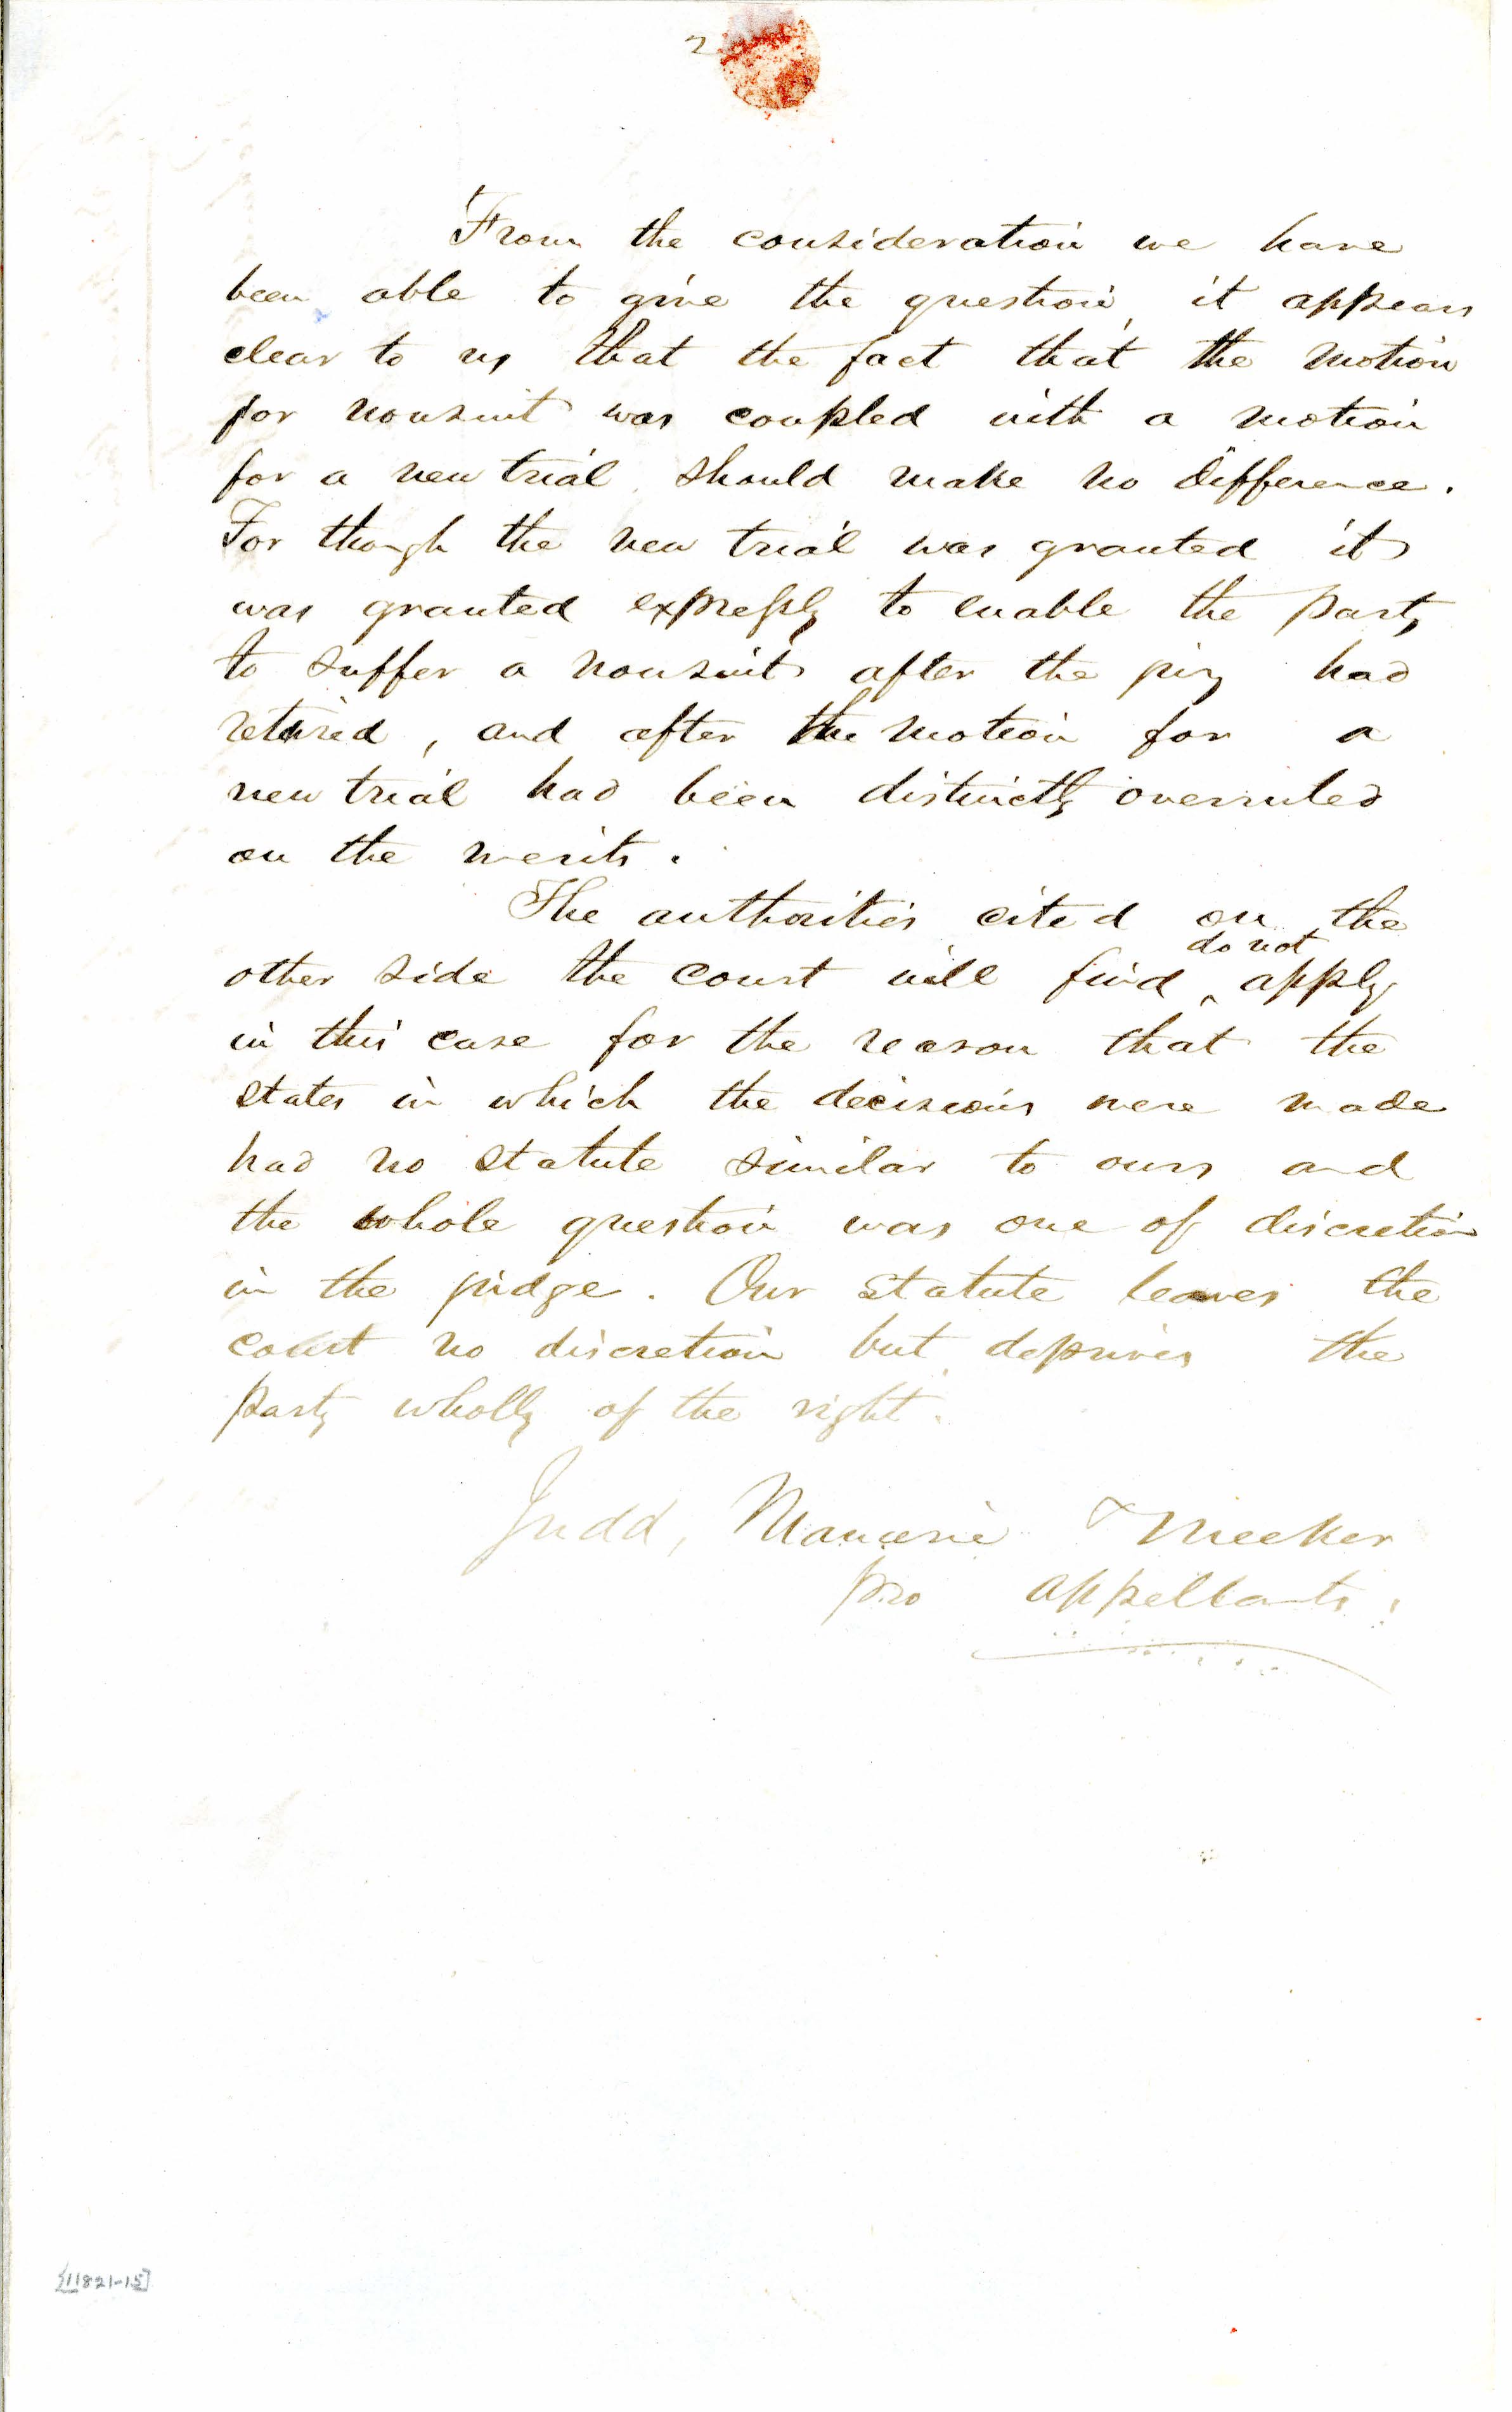 2
From the consideration we have
been able to give the question, it appears
clear to us that the fact that the motion
for nonsuit was coupled with a motion
for a new trial should make no difference.
For though the new trial was granted it
was granted expressly to enable the party
to suffer a nonsuit after the jury had
retired, and after the motion for a
new trial had been distinctly overruled
on the merits.
The authorities cited on the
do not
other side the court will find ‸ apply
in this case for the reason that the
states in which the decisions were made
had no statute similar to ours and
the whole question was one of discretion
in the judge. Our statute leaves the
court no discretion but deprives the
party wholly of the right.
Judd, & Meeker
pro appellants.
[11821-15]